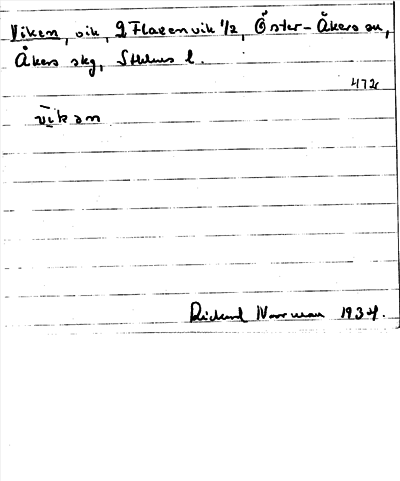 Viken, vik, g Flaxenvik 1/2, Öster-Åkers sn,
Åkers skg, Sthlms l.
472
vikən
Rickard Norrman 1934.